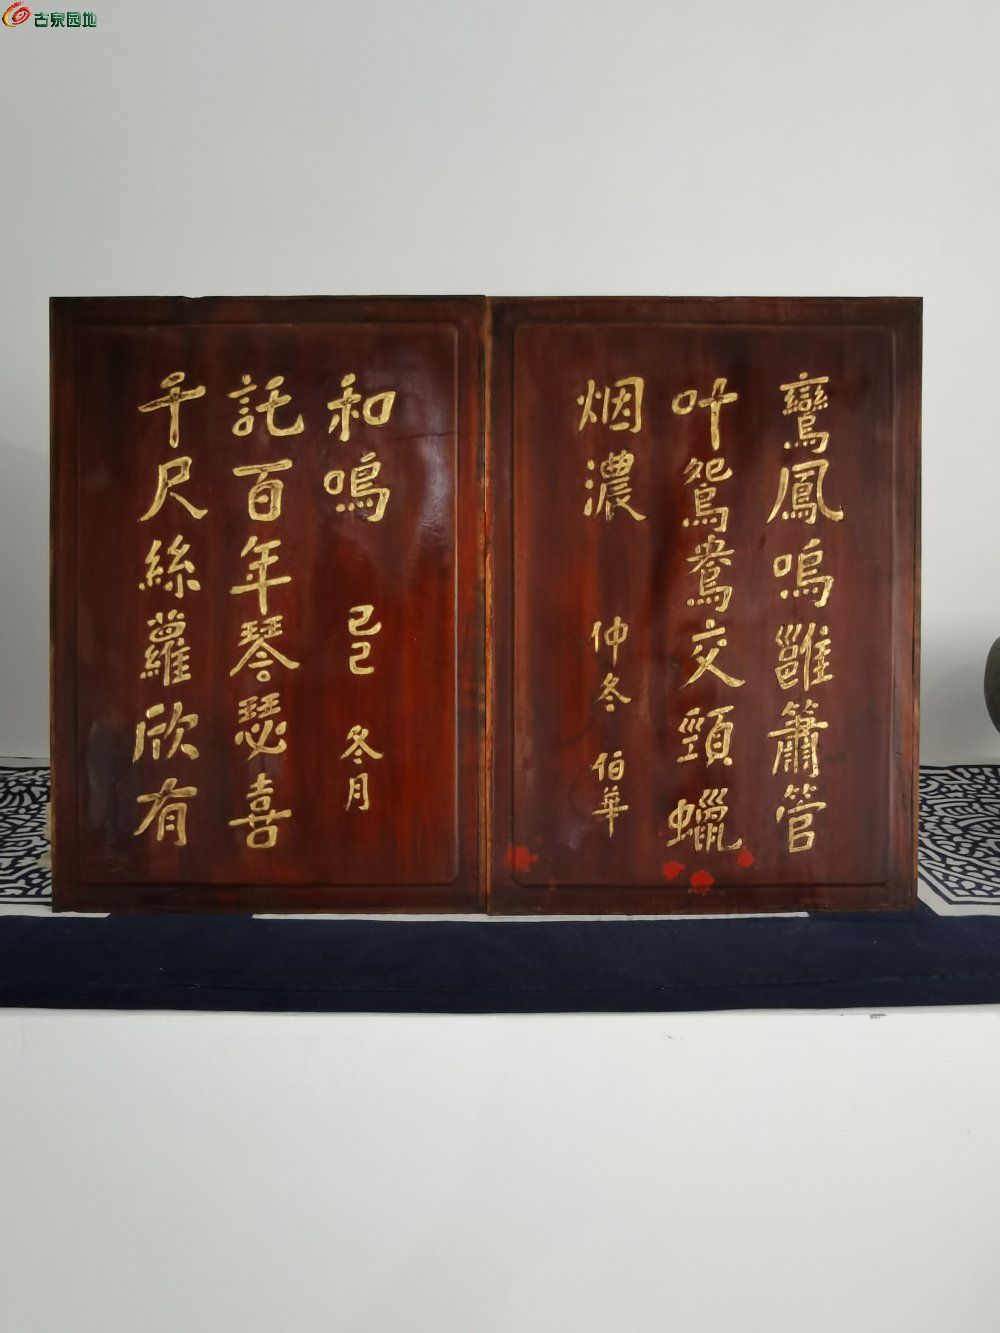 古泉园地
鸞鳳鳴雝簫管
叶鴛鴦交頸蠟
烟濃
仲冬 伯華
和鳴
己巳 冬月
託百年琴瑟喜
千尺絲蘿欣有